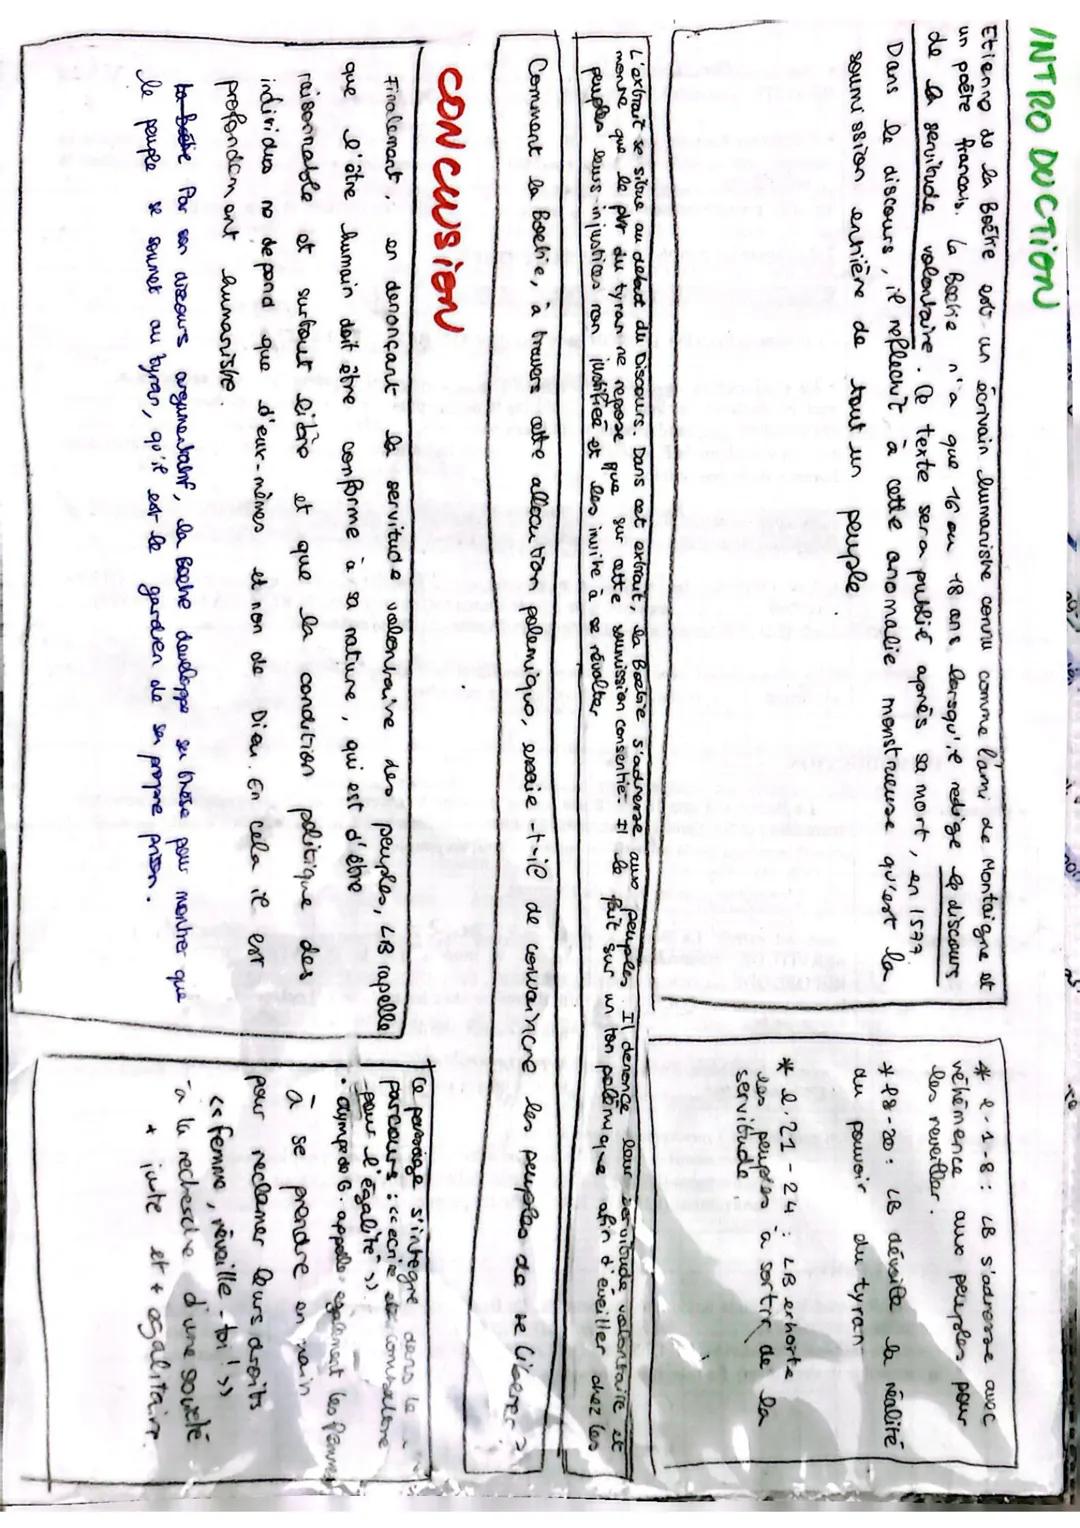 INTRODUCTION
Etienne de la Boétie est un écrivain humaniste connu comme l'ami de Montaigne et
un poète français. La Boétie n'a que 16 ou 18 ans lorsqu'il redige le discours
de la servitude volontaire. Ce texte sera publié après sa mort, en 1577.
Dans le discours, il réflechit à cette anomalie monstrueuse qu'est la
soumission entière de tout un peuple.
* l.1-8: LB s'adresse avec
véhémence aux peuples pour
les réveiller.
* l8-20: LB dévoile la réalité
du pouvoir du tyran
* l.21-24: LB exhorte
les peuples à sortir de la
servitude
L'extrait se situe au debut du Discours. Dans cet extrait la Boétie s'adresse aux peuples. Il denonce leur servitude volontaire et
montre que le pvr du tyran ne repose que sur cette soumission consentie. Il le fait sur un ton polémique afin d'eveiller chez les
peuples leurs injustices non justifiée et les invite à se révolter
Comment la Boetie, a travers cette allocution polemique, essaie-t-il de convaincre les peuples de se liberer ?
CONCLUSION
Finalement, en denonçant la servitude volontaire des peuples, LB rapelle
que l'être humain doit être conforme à sa nature, qui est d'être
raisonnable et surtout libre et que la condition politique des
individus ne depend que d'eux-mêmes et non de Dieu. En cela il est
profondément humaniste.
La Boétie Par son discours argumentatif, La Boetie developpe sa thèse pour montrer que
le peuple se soumet au tyran, qu'il est le gardien de sa propre prison.
Ce passage s'intègre dans le
parcours: << ecrire et combattre
pour l'égalité >>
• olympe de G. appelle également les femmes
à se prendre en main
pour reclamer leurs droits
<< femme, réveille-toi ! >>
- a la recherche d'une société
+ juste et + egalitaire.